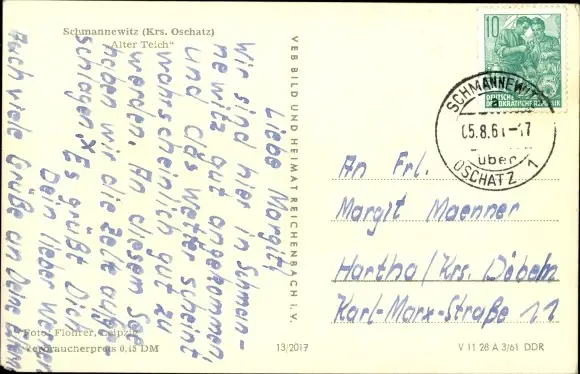 Schmannewitz (Krs. Oschatz)
"Alter Teich"
Liebe Margit,
Wir sind hier in Schman-
newitz gut angekommen,
und das Wetter scheint
wahrscheinlich gut zu
werden. An diesem See
haben wir die Zelte aufge-
schlagen. Es grüßt Dich
Dein lieber
Auch viele Grüße an Deine
VEB BILD UND HEIMAT REICHENBACH I. V.
10
DEUTSCHE
DEMOKRATISCHE REPUBLIK
SCHMANNEWITZ
über
OSCHATZ 1
An Frl.
Margit Maenner
Hartha/Krs. Döbeln
Karl-Marx-Straße 11
Foto: Flohrer, Leipzig
Verbraucherpreis 0,15 DM
13/2017
V 11 28 A 3/61 DDR